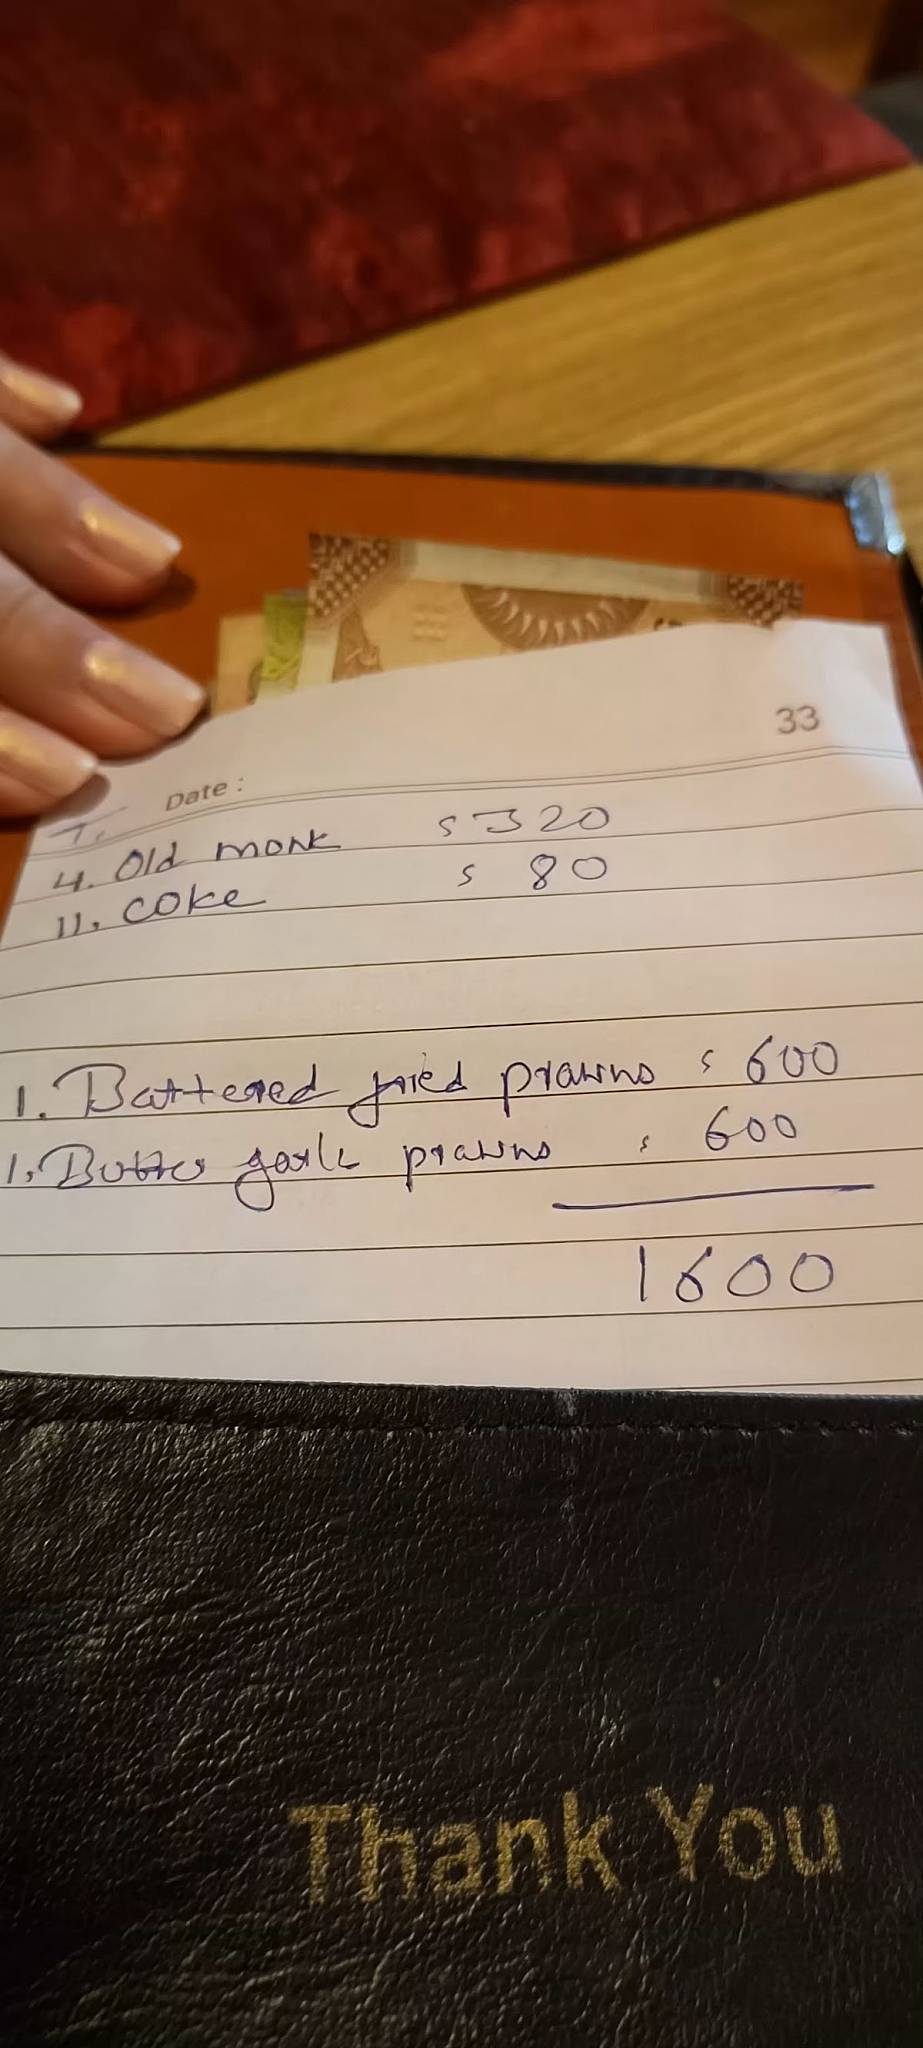 33
Date :
T.
4. Old monk s 320
11. coke s 80
1. Battered fried prawns s 600
1. Butter garlic prawns s 600
1600
Thank You